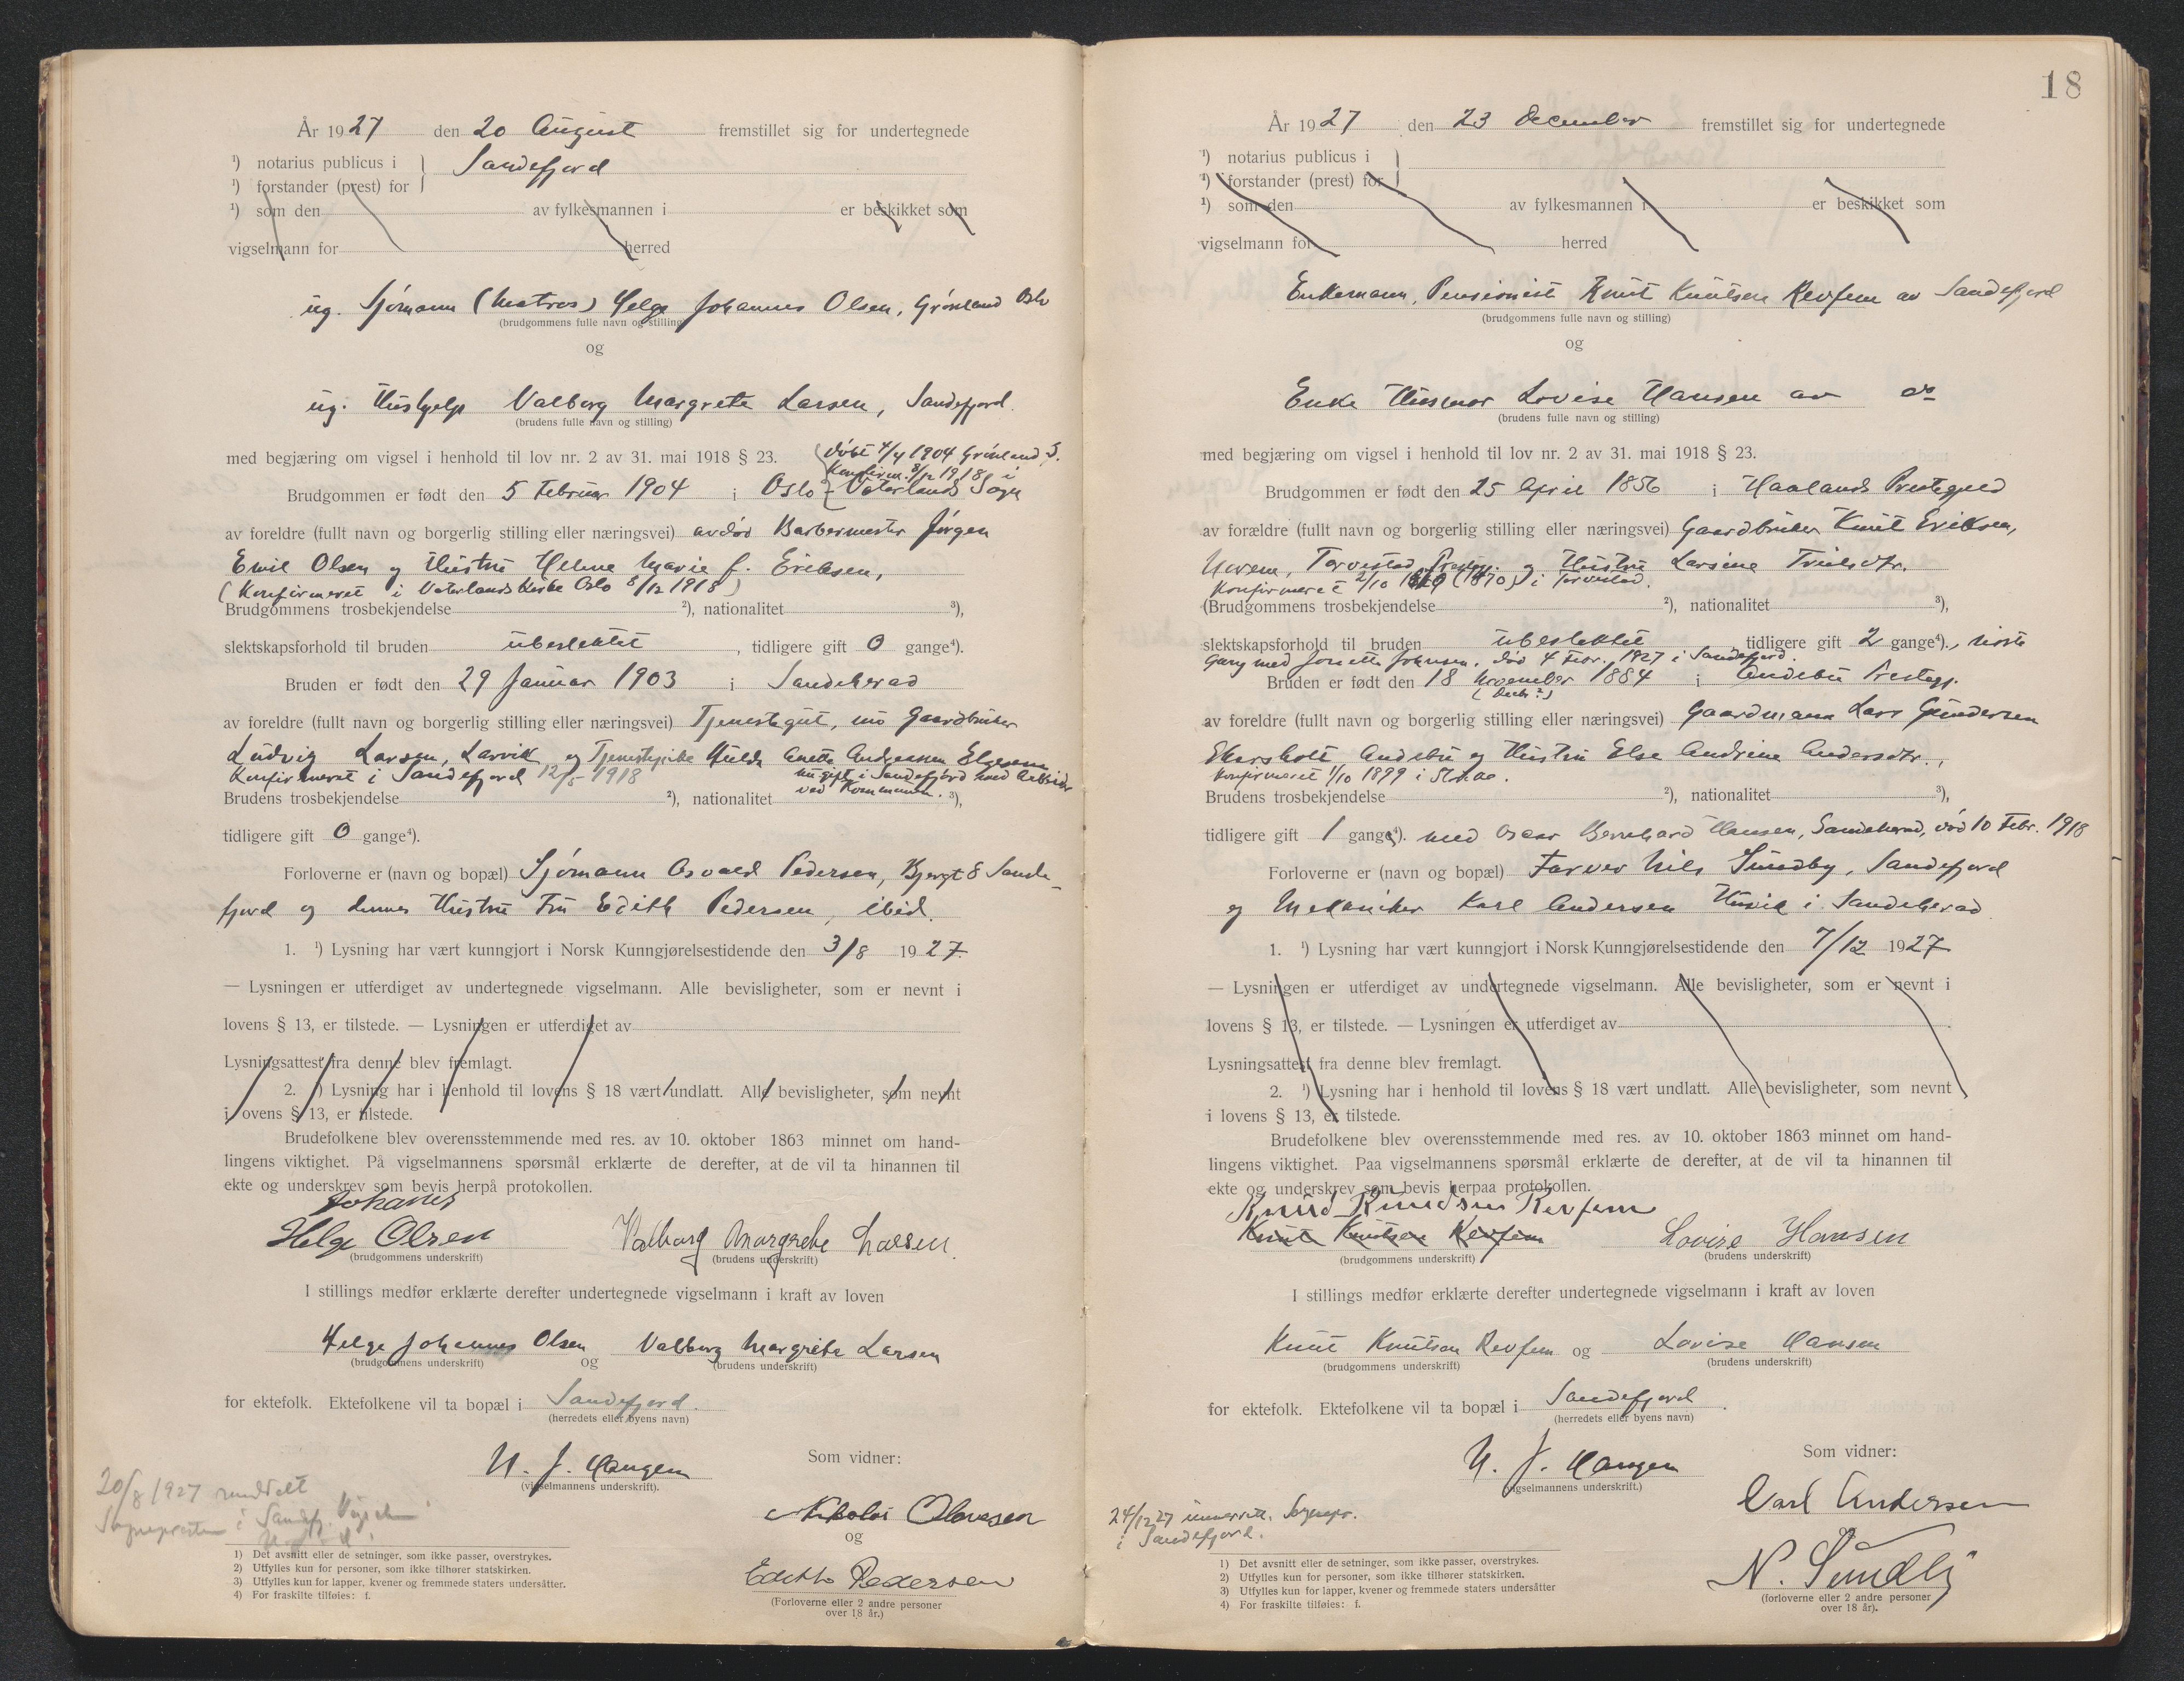 År 1927 den 20 August fremstillet sig for undertegnede
¹) notarius publicus i } Sandefjord
¹) forstander (prest) for
¹) som den av fylkesmannen i er beskikket som
vigselmann for herred
ug. Sjømann (Matros) Helge Johannes Olsen, Grønland Oslo
(brudgommens fulle navn og stilling)
og
ug. Hushjelp Valborg Margrete Larsen, Sandefjord.
(brudens fulle navn og stilling)
med begjæring om vigsel i henhold til lov nr. 2 av 31. mai 1918 § 23. (døbt 4/4 1904 Grønland S.
Konfirm. 8/12 1918 i
Brudgommen er født den 5 Februar 1904 i Oslo - Vaterlands Sogn
av foreldre (fullt navn og borgerlig stilling eller næringsvei) avdød Barbermester Jørgen
Emil Olsen og Hustru Helene Marie f. Eriksen,
(Konfirmeret i Vaterlands Kirke Oslo 8/12 1918)
Brudgommens trosbekjendelse ²), nationalitet ³),
slektskapsforhold til bruden ubeslektet, tidligere gift 0 gange⁴).
Bruden er født den 29 Januar 1903 i Sandeherad
av foreldre (fullt navn og borgerlig stilling eller næringsvei) Tjenestegut, nu Gaardbruker
Ludvig Larsen, Larvik og Tjenestepike Hulda Anette Andreassen
Konfirmeret i Sandefjord 12/5 1918 nu gift i Sandefjord med Arbeider
ved Kommunen.
Brudens trosbekjendelse ²), nationalitet ³),
tidligere gift 0 gange⁴).
Forloverne er (navn og bopæl) Sjømann Osvald Pedersen, Bjergt 8 Sande-
fjord og dennes Hustru Fru Edith Pedersen, ibid.
1. ¹) Lysning har vært kunngjort i Norsk Kunngjørelsestidende den 3/8 1927.
— Lysningen er utferdiget av undertegnede vigselmann. Alle bevisligheter, som er nevnt i
lovens § 13, er tilstede. — Lysningen er utferdiget av
Lysningsattest fra denne blev fremlagt.
2. ¹) Lysning har i henhold til lovens § 18 vært undlatt. Alle bevisligheter, som nevnt
i lovens § 13, er tilstede.
Brudefolkene blev overensstemmende med res. av 10. oktober 1863 minnet om hand-
lingens viktighet. På vigselmannens spørsmål erklærte de derefter, at de vil ta hinannen til
ekte og underskrev som bevis herpå protokollen.
Johanes
Helge Olsen Valborg Margrethe Larsen.
(brudgommens underskrift) (brudens underskrift)
I stillings medfør erklærte derefter undertegnede vigselmann i kraft av loven
Helge Johannes Olsen og Valborg Margrethe Larsen
(brudgommens underskrift) (brudens underskrift)
for ektefolk. Ektefolkene vil ta bopæl i Sandefjord.
(herredets eller byens navn)
N. J. Haugen
(vigselmannens underskrift).
Som vidner:
20/8 1927 meddelt
Sognepresten i Sandefj.
Nikolai Olavesen
og
Edith Pedersen
(Forloverne eller 2 andre personer
over 18 år.)
1) Det avsnitt eller de setninger, som ikke passer, overstrykes.
2) Utfylles kun for personer, som ikke tilhører statskirken.
3) Utfylles kun for lapper, kvener og fremmede staters undersåtter.
4) For fraskilte tilføies: f.
18
År 1927 den 23 December fremstillet sig for undertegnede
¹) notarius publicus i }
¹) forstander (prest) for
¹) som den av fylkesmannen i er beskikket som
vigselmann for herred
Enkemann, Pensionist Knut Knutsen Revfem av Sandefjord
(brudgommens fulle navn og stilling)
og
Enke Husmor Lovise Hansen av do
(brudens fulle navn og stilling)
med begjæring om vigsel i henhold til lov nr. 2 av 31. mai 1918 § 23.
Brudgommen er født den 25 April 1856 i Haalands Prestegjeld
av forældre (fullt navn og borgerlig stilling eller næringsvei) Gaardbruker Knut Eriksen,
Torvestad Prestegj. og Hustru Larsine
Konfirmeret 2/10 (1870) i Torvestad.
(Brudgommens trosbekjendelse ²), nationalitet ³),
slektskapsforhold til bruden ubeslektet tidligere gift 2 gange⁴)., siste
Gang med Johnsen, død 4 Febr. 1927 i Sandefjord.
Bruden er født den 18 November 1884 i Andebu Prestegj.
(Decbr ?)
av foreldre (fullt navn og borgerlig stilling eller næringsvei) Gaardmann Lars Gundersen
Andebu og Hustru Else Andrine Andersdtr.,
Konfirmeret 1/10 1899 i
Brudens trosbekjendelse ²), nationalitet ³),
tidligere gift 1 gange⁴). med Oscar Bernhard Hansen, Sandeherad, død 10 Febr. 1918
Forloverne er (navn og bopæl) Farver Nils Sundby, Sandefjord
og Mekaniker Karl Andersen Huvik i Sandeherad
1. ¹) Lysning har vært kunngjort i Norsk Kunngjørelsestidende den 7/12 1927
— Lysningen er utferdiget av undertegnede vigselmann. Alle bevisligheter, som er nevnt i
lovens § 13, er tilstede. — Lysningen er utferdiget av
Lysningsattest fra denne blev fremlagt.
2. ¹) Lysning har i henhold til lovens § 18 vært undlatt. Alle bevisligheter, som nevnt
i lovens § 13, er tilstede.
Brudefolkene blev overensstemmende med res. av 10. oktober 1863 minnet om hand-
lingens viktighet. Paa vigselmannens spørsmål erklærte de derefter, at de vil ta hinannen til
ekte og underskrev som bevis herpaa protokollen.
Knud Knudsen Revfem
Knut Knutsen Revfem Lovise Hansen
(brudgommens underskrift) (brudens underskrift)
I stillings medfør erklærte derefter undertegnede vigselmann i kraft av loven
Knut Knutsen Revfem og Lovise Hansen
(brudgommens underskrift) (brudens underskrift)
for ektefolk. Ektefolkene vil ta bopæl i Sandefjord.
(herredets eller byens navn)
N. J. Haugen
(vigselmannens underskrift.)
Som vidner:
24/12 27 underrett. Sognepr.
i Sandefjord.
Carl Andersen
N. Sundby
(forloverne eller 2 andre personer
over 18 år).
1) Det avsnitt eller de setninger, som ikke passer, overstrykes.
2) Utfylles kun for personer, som ikke tilhører statskirken.
3) Utfylles kun for lapper, kvener og fremmede staters undersåtter
4) For fraskilte tilføies: f.